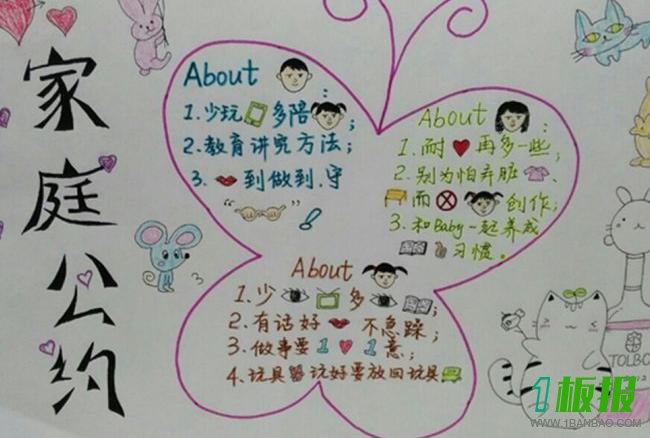 家庭公约
About :
1.少玩 多陪 ;
2.教育讲究方法;
3. 到做到.守
About :
1.耐 再多一些;
2.别为怕弄脏 、
而 创作;
3.和Baby一起养成
习惯。
About :
1.少 多 ;
2.有话好 不急躁;
3.做事要1 1意;
4.玩具 玩好要放回玩具
TOLBO
1板报
WWW.1BANBAO.COM